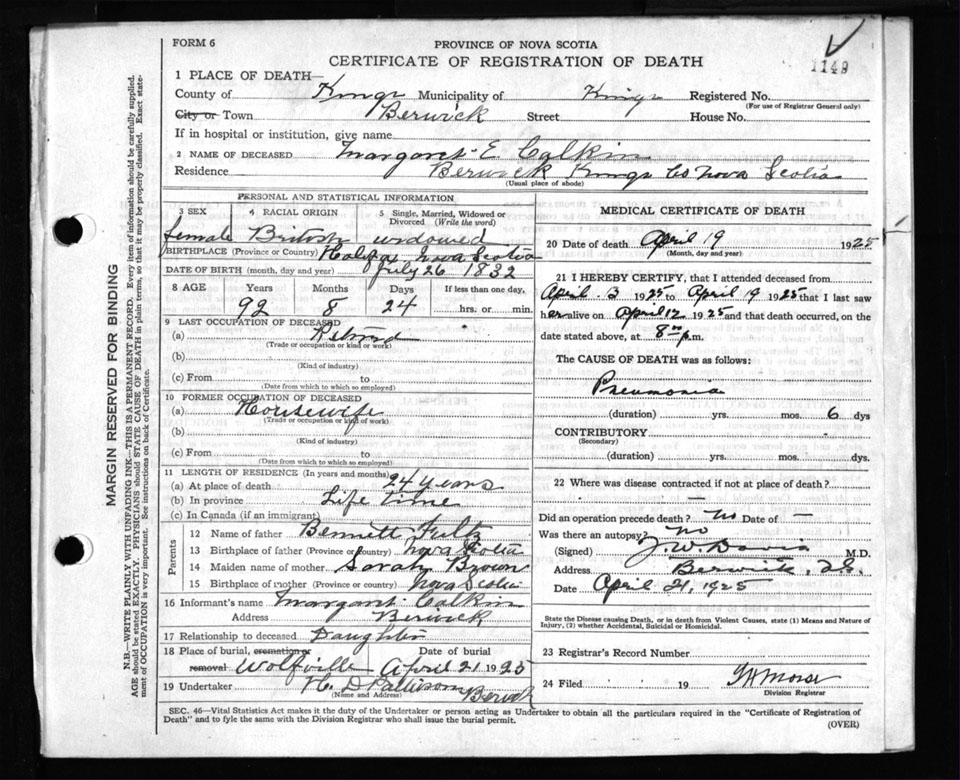 FORM 6
PROVINCE OF NOVA SCOTIA
CERTIFICATE OF REGISTRATION OF DEATH
1149
1 PLACE OF DEATH—
County of Kings Municipality of Kings Registered No.
(For use of Registrar General only)
City or Town Berwick Street House No.
If in hospital or institution, give name
2 NAME OF DECEASED Margaret E Calkin
Residence Berwick Kings Co Nova Scotia
(Usual place of abode)
PERSONAL AND STATISTICAL INFORMATION
3 SEX 4 RACIAL ORIGIN 5 Single, Married, Widowed or Divorced (Write the word)
female British widowed
BIRTHPLACE (Province or Country) Halifax Nova Scotia
DATE OF BIRTH (month, day and year) July 26 1832
8 AGE Years Months Days If less than one day,
92 8 24 hrs. or min.
9 LAST OCCUPATION OF DECEASED
(a) Retired
(Trade or occupation or kind of work)
(b)
(Kind of industry)
(c) From to
(Date from which to which so employed)
10 FORMER OCCUPATION OF DECEASED
(a) Housewife
(Trade or occupation or kind of work)
(b)
(Kind of industry)
(c) From to
(Date from which to which so employed)
11 LENGTH OF RESIDENCE (In years and months)
(a) At place of death 24 years
(b) In province Life time
(c) In Canada (if an immigrant)
Parents
12 Name of father Bennett Fultz
13 Birthplace of father (Province or country) Nova Scotia
14 Maiden name of mother Sarah Brown
15 Birthplace of mother (Province or country) Nova Scotia
16 Informant's name Margaret Calkin
Address Berwick
17 Relationship to deceased Daughter
18 Place of burial, cremation or removal Date of burial
Wolfville April 21 1925
19 Undertaker H. D Pattison Berwick
(Name and Address)
MEDICAL CERTIFICATE OF DEATH
20 Date of death April 19 1925
(Month, day and year)
21 I HEREBY CERTIFY, that I attended deceased from
April 3 1925 to April 19 1925 that I last saw
her alive on April 12 1925 and that death occurred, on the
date stated above, at 8 p.m.
The CAUSE OF DEATH was as follows:
Pneumonia
(duration) yrs. mos. 6 dys
CONTRIBUTORY
(Secondary)
(duration) yrs. mos. dys.
22 Where was disease contracted if not at place of death?
—
Did an operation precede death? no Date of —
Was there an autopsy? no
(Signed) J. W. Davis M.D.
Address Berwick, N.S.
Date April 21, 1925
State the Disease causing Death, or in death from Violent Causes, state (1) Means and Nature of
Injury, (2) whether Accidental, Suicidal or Homicidal.
23 Registrar's Record Number
24 Filed 19 Morse
Division Registrar
SEC. 46—Vital Statistics Act makes it the duty of the Undertaker or person acting as Undertaker to obtain all the particulars required in the "Certificate of Registration of
Death" and to fyle the same with the Division Registrar who shall issue the burial permit.
(OVER)
MARGIN RESERVED FOR BINDING
N.B.—WRITE PLAINLY WITH UNFADING INK—THIS IS A PERMANENT RECORD. Every item of information should be carefully supplied.
AGE should be stated EXACTLY. PHYSICIANS should STATE CAUSE OF DEATH in plain terms, so that it may be properly classified. Exact state-
ment of OCCUPATION is very important. See instructions on back of Certificate.